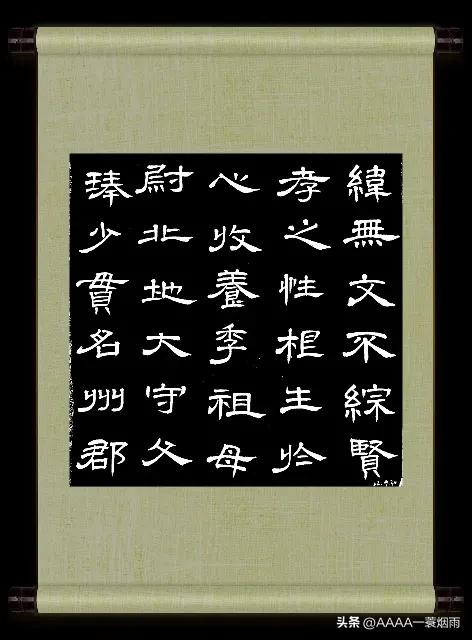 緯無文不綜賢
孝之性根生於
心收養季祖母
尉北地大守父
琫少貫名州郡
头条 @AAAA一蓑烟雨